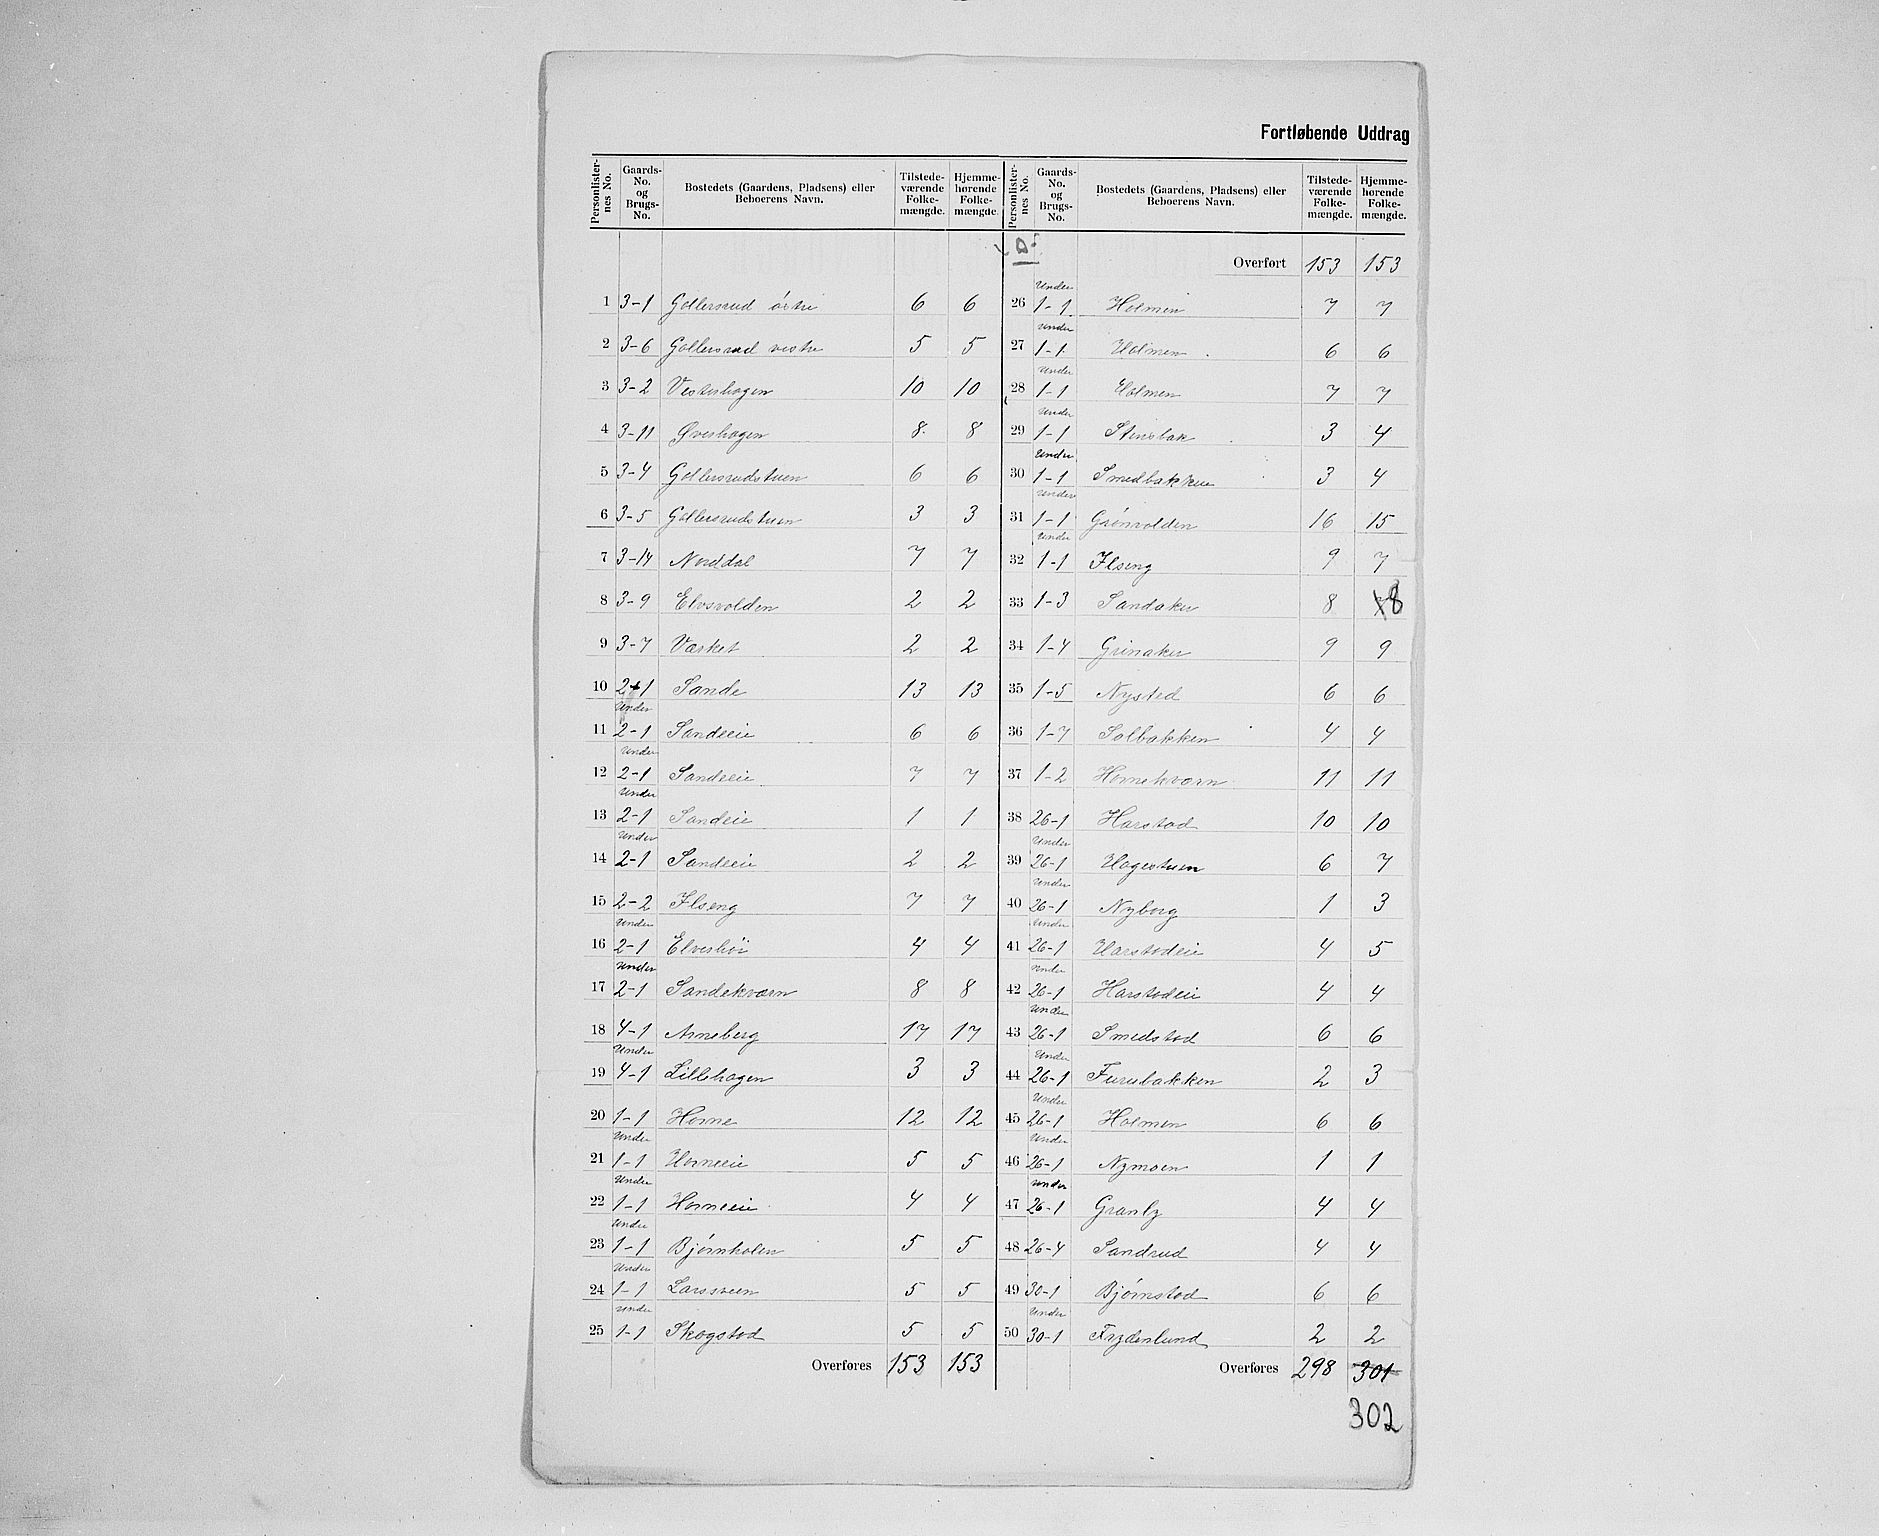 Fortløbende Uddrag
Personlisternes No. Gaards-No. og Brugs-No. Bostedets (Gaardens, Pladsens) eller Beboerens Navn. Tilstedeværende Folkemængde. Hjemmehørende Folkemængde.
1 3-1 Gollersrud østre 6 6
2 3-6 Gollersrud vestre 5 5
3 3-2 Vesterhagen 10 10
4 3-11 Øverhagen 8 8
5 3-4 Gollersrudstuen 6 6
6 3-5 Gollersrudstuen 3 3
7 3-14 Norddal 7 7
8 3-9 Elvsvolden 2 2
9 3-7 Værket 2 2
10 2-1 Sande 13 13
11 Under 2-1 Sandeeie 6 6
12 Under 2-1 Sandeeie 7 7
13 Under 2-1 Sandeie 1 1
14 Under 2-1 Sandeeie 2 2
15 2-2 Ilseng 7 7
16 Under 2-1 Elveshøi 4 4
17 Under 2-1 Sandekværn 8 8
18 4-1 Arneberg 17 17
19 Under 4-1 Lillehagen 3 3
20 1-1 Horne 12 12
21 Under 1-1 Horneeie 5 5
22 Under 1-1 Horneeie 4 4
23 Under 1-1 Bjørnholen 5 5
24 Under 1-1 Larsveen 5 5
25 Under 1-1 Skogstad 5 5
Overføres 153 153
Personlisternes No. Gaards-No. og Brugs-No. Bostedets (Gaardens, Pladsens) eller Beboerens Navn. Tilstedeværende Folkemængde. Hjemmehørende Folkemængde.
Overført 153 153
26 Under 1-1 Holmen 7 7
27 Under 1-1 Holmen 6 6
28 Under 1-1 Holmen 7 7
29 Under 1-1 Stensbak 3 4
30 Under 1-1 Smedbakken 3 4
31 Under 1-1 Grønvolden 16 15
32 Under 1-1 Ilseng 9 7
33 1-3 Sandaker 8 8
34 1-4 Grinaker 9 9
35 1-5 Nysted 6 6
36 1-7 Solbakken 4 4
37 1-2 Hornekværn 11 11
38 26-1 Harstad 10 10
39 Under 26-1 Hagestuen 6 7
40 Under 26-1 Nyborg 1 3
41 Under 26-1 Harstadeie 4 5
42 Under 26-1 Harstadeie 4 4
43 Under 26-1 Smedstad 6 6
44 Under 26-1 Furubakken 2 3
45 Under 26-1 Holmen 6 6
46 Under 26-1 Nymoen 1 1
47 Under 26-1 Granly 4 4
48 26-4 Sandrud 4 4
49 30-1 Bjørnstad 6 6
50 Under 30-1 Frydenlund 2 2
Overføres 298 301
302